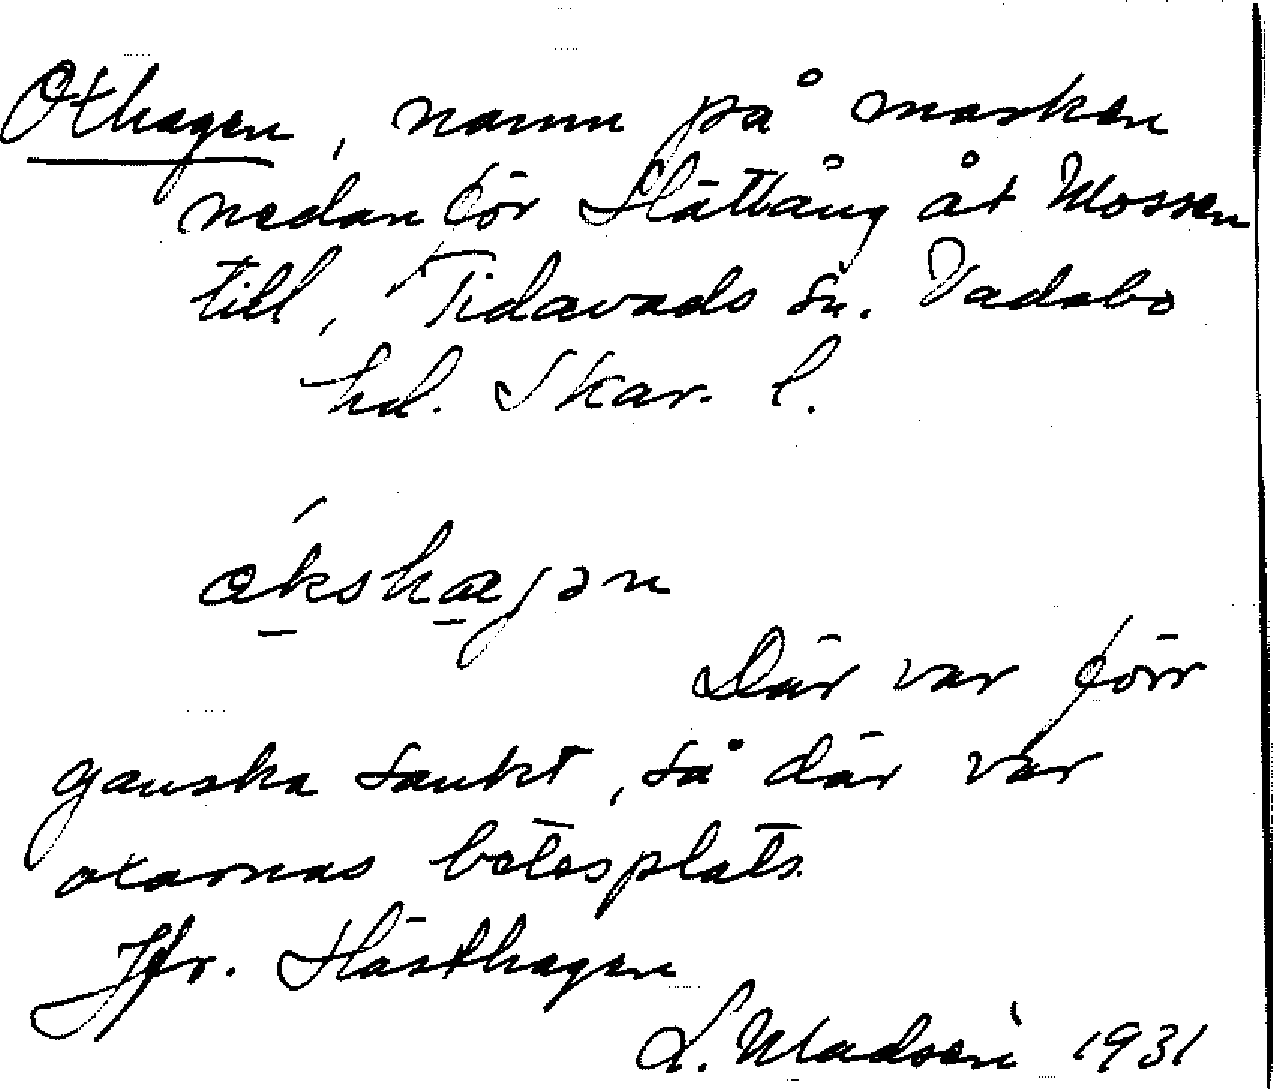 Oxhagen, namn på marken
nedanför Slättäng åt Mossen
till, Tidavads sn. Vadsbo
hd. Skar. l.
Där var förr
ganska sankt, så där var
oxarnas betesplats.
Jfr. Hästhagen
L. Madsén 1931